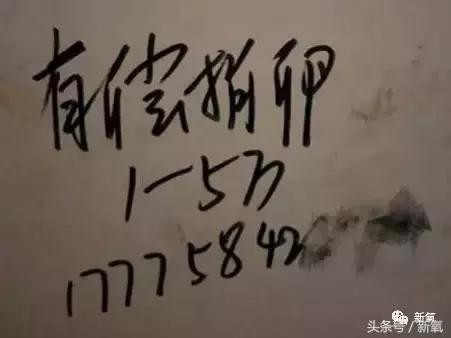 有偿捐卵
1-5万
17775842
新氧
头条号 / 新氧